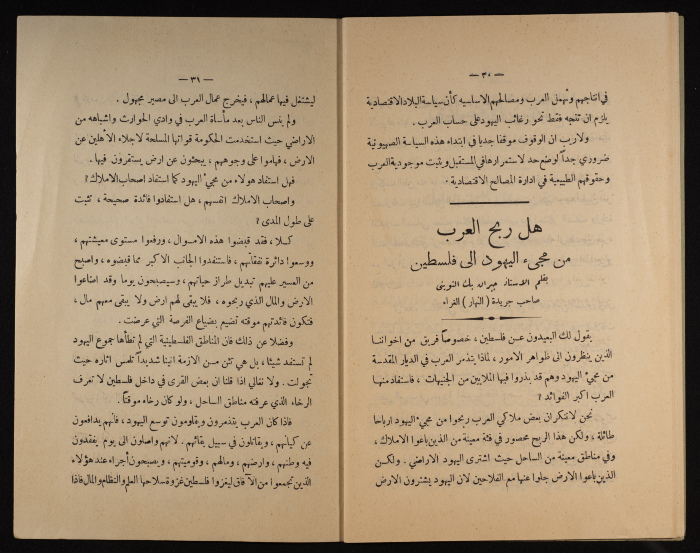 — ٣٠ —
في انتاجهم وتهمل العرب ومصالحهم الاساسيه كأن سياسة البلاد الاقتصادية
يلزم ان تتجه فقط نحو رغائب اليهود على حساب العرب .
ولاريب ان الوقوف موقفا جديا في ابتداء هذه السياسة الصهيونية
ضروري جداً لوضع حد لاستمرارها في المستقبل ويثبت موجودية العرب
وحقوقهم الطبيعية في ادارة المصالح الاقتصادية .
هل ربح العرب
من مجيء اليهود الى فلسطين
بقلم الاستاذ جبران بك التويني
صاحب جريدة ( النهار ) الغراء
يقول لك البعيدون عن فلسطين ، خصوصاً فريق من اخواننا
الذين ينظرون الى ظواهر الامور ، لماذا يتذمر العرب في الديار المقدسة
من مجيء اليهود وهم قد بذروا فيها الملايين من الجنيهات ، فاستفاد منها
العرب اكبر الفوائد ؟
نحن لاننكر ان بعض ملاكي العرب ربحوا من مجيء اليهود ارباحا
طائلة ، ولكن هذا الربح محصور في فئة معينة من الذين باعوا الاملاك ،
وفي مناطق معينة من الساحل حيث اشترى اليهود الاراضي . ولكن
الذين باعوا الارض جلوا عنها مع الفلاحين لان اليهود يشترون الارض
— ٣١ —
ليشتغل فيها عمالهم ، فيخرج عمال العرب الى مصير مجهول .
ولم ينس الناس بعد مأساة العرب في وادي الحوارث واشباهه من
الاراضي حيث استخدمت الحكومة قواتها المسلحة لاجلاء الاهلين عن
الارض ، فهاموا على وجوههم ، يبحثون عن ارض يستقرون فيها .
فهل استفاد هولاء من مجيء اليهود كما استفاد اصحاب الاملاك ؟
واصحاب الاملاك انفسهم ، هل استفادوا فائدة صحيحة ، تثبت
على طول المدى ؟
كلا ، فقد قبضوا هذه الاموال ، ورفعوا مستوى معيشتهم ،
ووسعوا دائرة نفقاتهم ، فاستنفدوا الجانب الاكبر مما قبضوه ، واصبح
من العسير عليهم تبديل طراز حياتهم ، وسيصبحون يوما وقد اضاعوا
الارض والمال الذي ربحوه ، فلا يبقى لهم ارض ولا يبقى معهم مال ،
فتكون فائدتهم موقته تضيع بضياع الفرصة التي عرضت .
وفضلا عن ذلك فان المناطق الفلسطينية التي لم تطأها جموع اليهود
لم تستفد شيئا ، بل هي تئن من الازمة انينا شديداً تلمس اثاره حيث
تجولت . ولا نغالي اذا قلنا ان بعض القرى في داخل فلسطين لا تعرف
الرخاء الذي عرفته مناطق الساحل ، ولو كان رخاء موقتا .
فاذا كان العرب يتذمرون ويقاومون توسع اليهود ، فانهم يدافعون
عن كيانهم ، ويقاتلون في سبيل بقائهم . لانهم واصلون الى يوم يفقدون
فيه وطنهم ، وارضهم ، ومالهم ، وقوميتهم ، ويصبحون أجراء عند هؤلاء
الذين تجمعوا من الآفاق ليغزوا فلسطين غزوة سلاحها العلم والنظام والمال فاذا